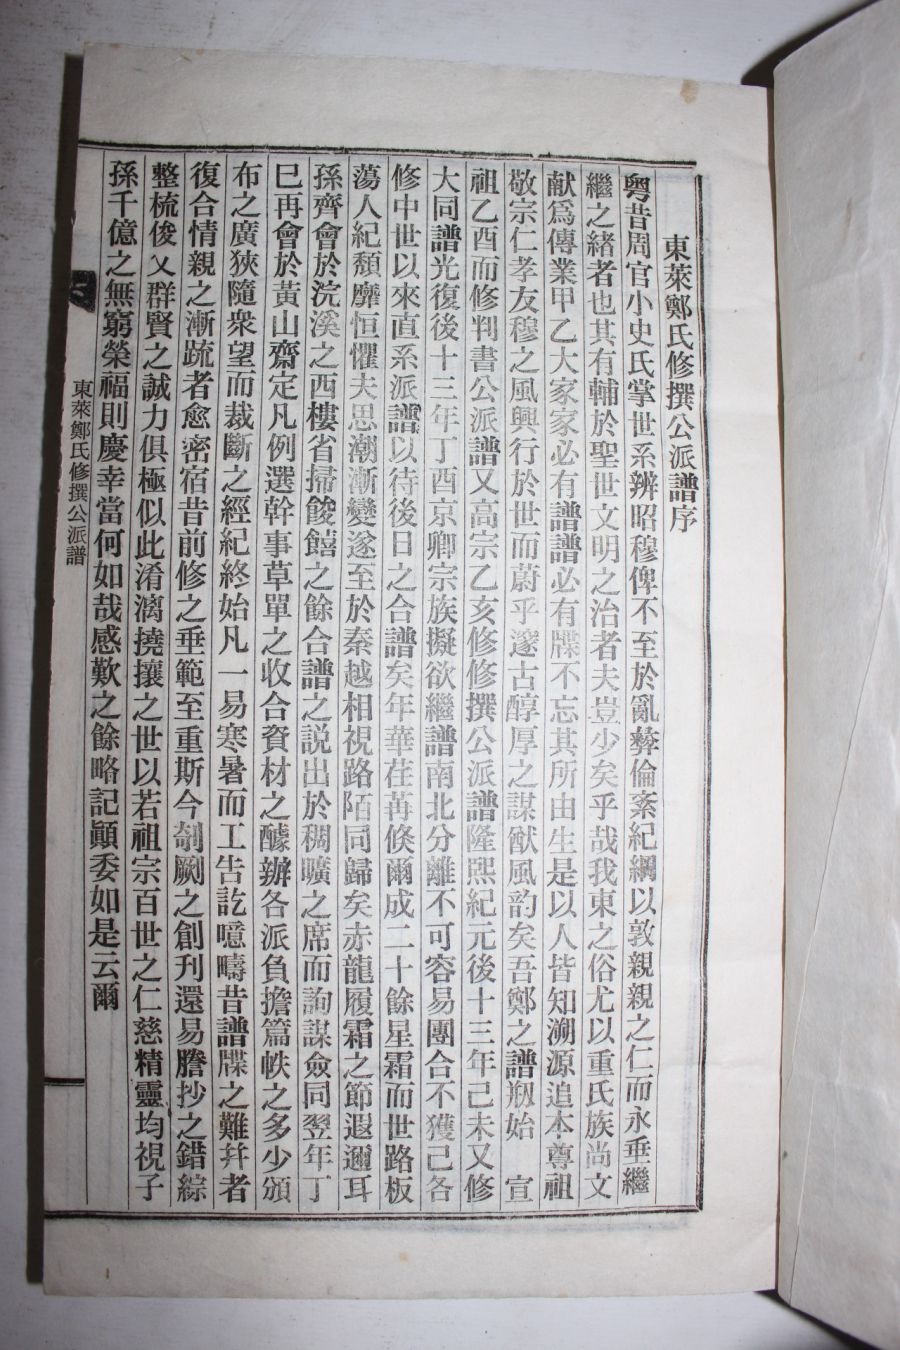 東萊鄭氏修撰公派譜序
粤昔周官小史氏掌世系辨昭穆俾不至於亂彝倫紊紀綱以敦親親之仁而永垂繼
繼之緒者也其有輔於聖世文明之治者夫豈少矣乎哉我東之俗尤以重氏族尚文
献爲傳業甲乙大家家必有譜譜必有牒不忘其所由生是以人皆知溯源追本尊祖
敬宗仁孝友穆之風興行於世而蔚乎邃古醇厚之謀猷風韵矣吾鄭之譜刱始 宣
祖乙酉而修判書公派譜又高宗乙亥修修撰公派譜隆熙紀元後十三年己未又修
大同譜光復後十三年丁酉京鄉宗族擬欲繼譜南北分離不可容易團合不獲已各
修中世以來直系派譜以待後日之合譜矣年華荏苒倏爾成二十餘星霜而世路板
蕩人紀頹靡恒懼夫思潮漸變遂至於秦越相視路陌同歸矣赤龍履霜之節遐邇耳
孫齊會於浣溪之西樓省掃餕饎之餘合譜之説出於稠曠之席而詢謀僉同翌年丁
巳再會於黃山齋定凡例選幹事草單之收合資材之醵辦各派負擔篇帙之多少頒
布之廣狹隨衆望而裁斷之經紀終始凡一易寒暑而工告訖噫疇昔譜牒之難幷者
復合情親之漸疏者愈密宿昔前修之垂範至重斯今剞劂之創刊還易謄抄之錯綜
整梳俊乂群賢之誠力俱極似此淆漓撓攘之世以若祖宗百世之仁慈精靈均視子
孫千億之無窮榮福則慶幸當何如哉感歎之餘略記顚委如是云爾
東萊鄭氏修撰公派譜